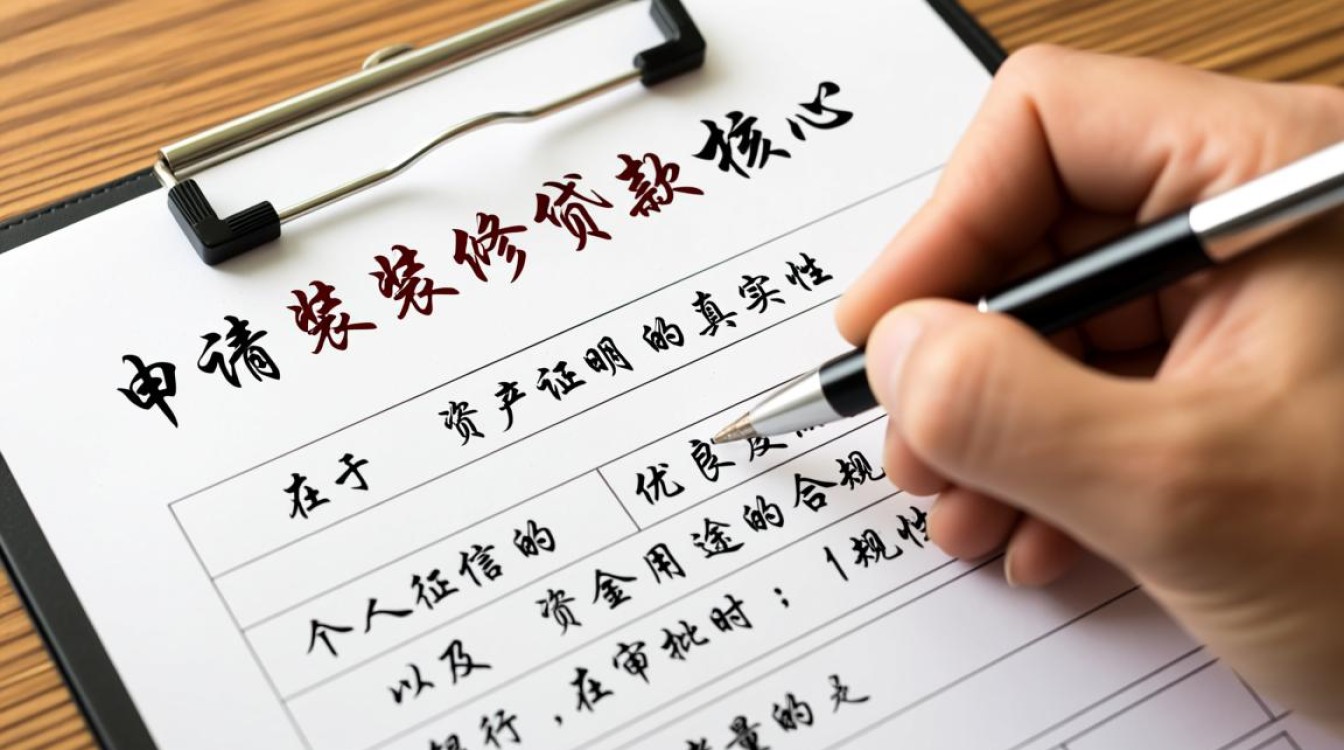 申请装装修贷款核心
在于 资产证明的真实性
个人征信的 优良度
以及 资金用途的合规
银行，在审批时；1规性
考量的是